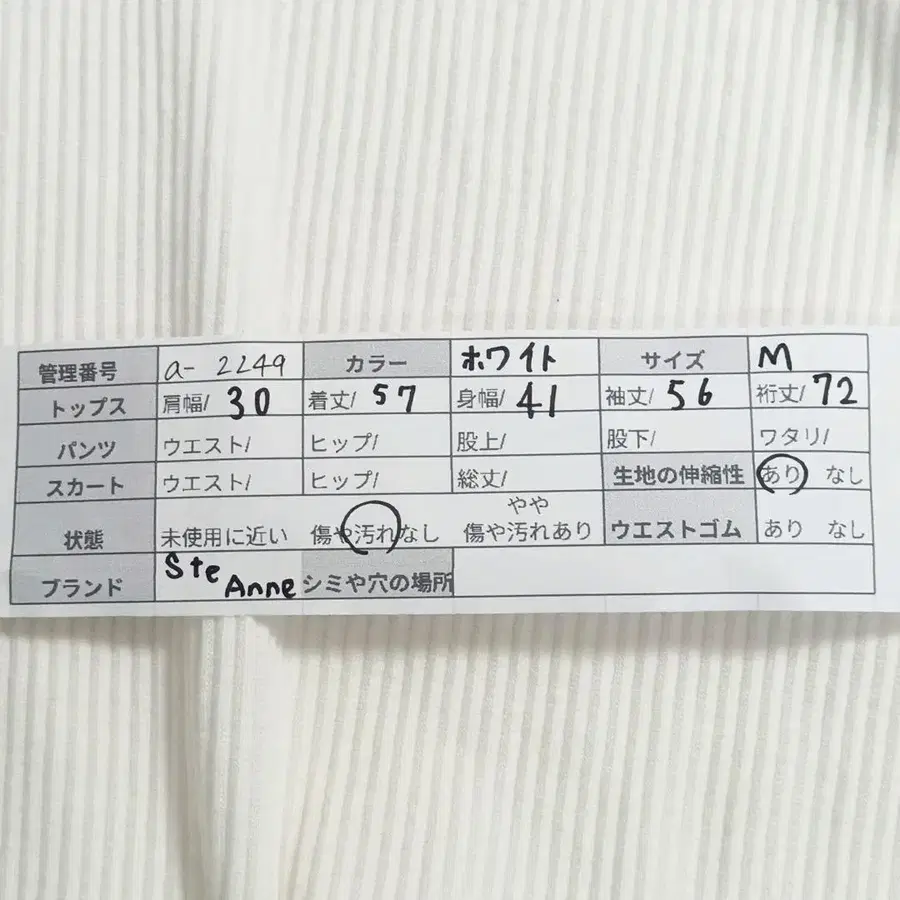 管理番号 a- 2249 カラー ホワイト サイズ M
トップス 肩幅/ 30 着丈/ 57 身幅/ 41 袖丈/ 56 裄丈/ 72
パンツ ウエスト/ ヒップ/ 股上/ 股下/ ワタリ/
スカート ウエスト/ ヒップ/ 総丈/ 生地の伸縮性 あり なし
状態 未使用に近い 傷や汚れなし やや傷や汚れあり ウエストゴム あり なし
ブランド Ste Anne シミや穴の場所